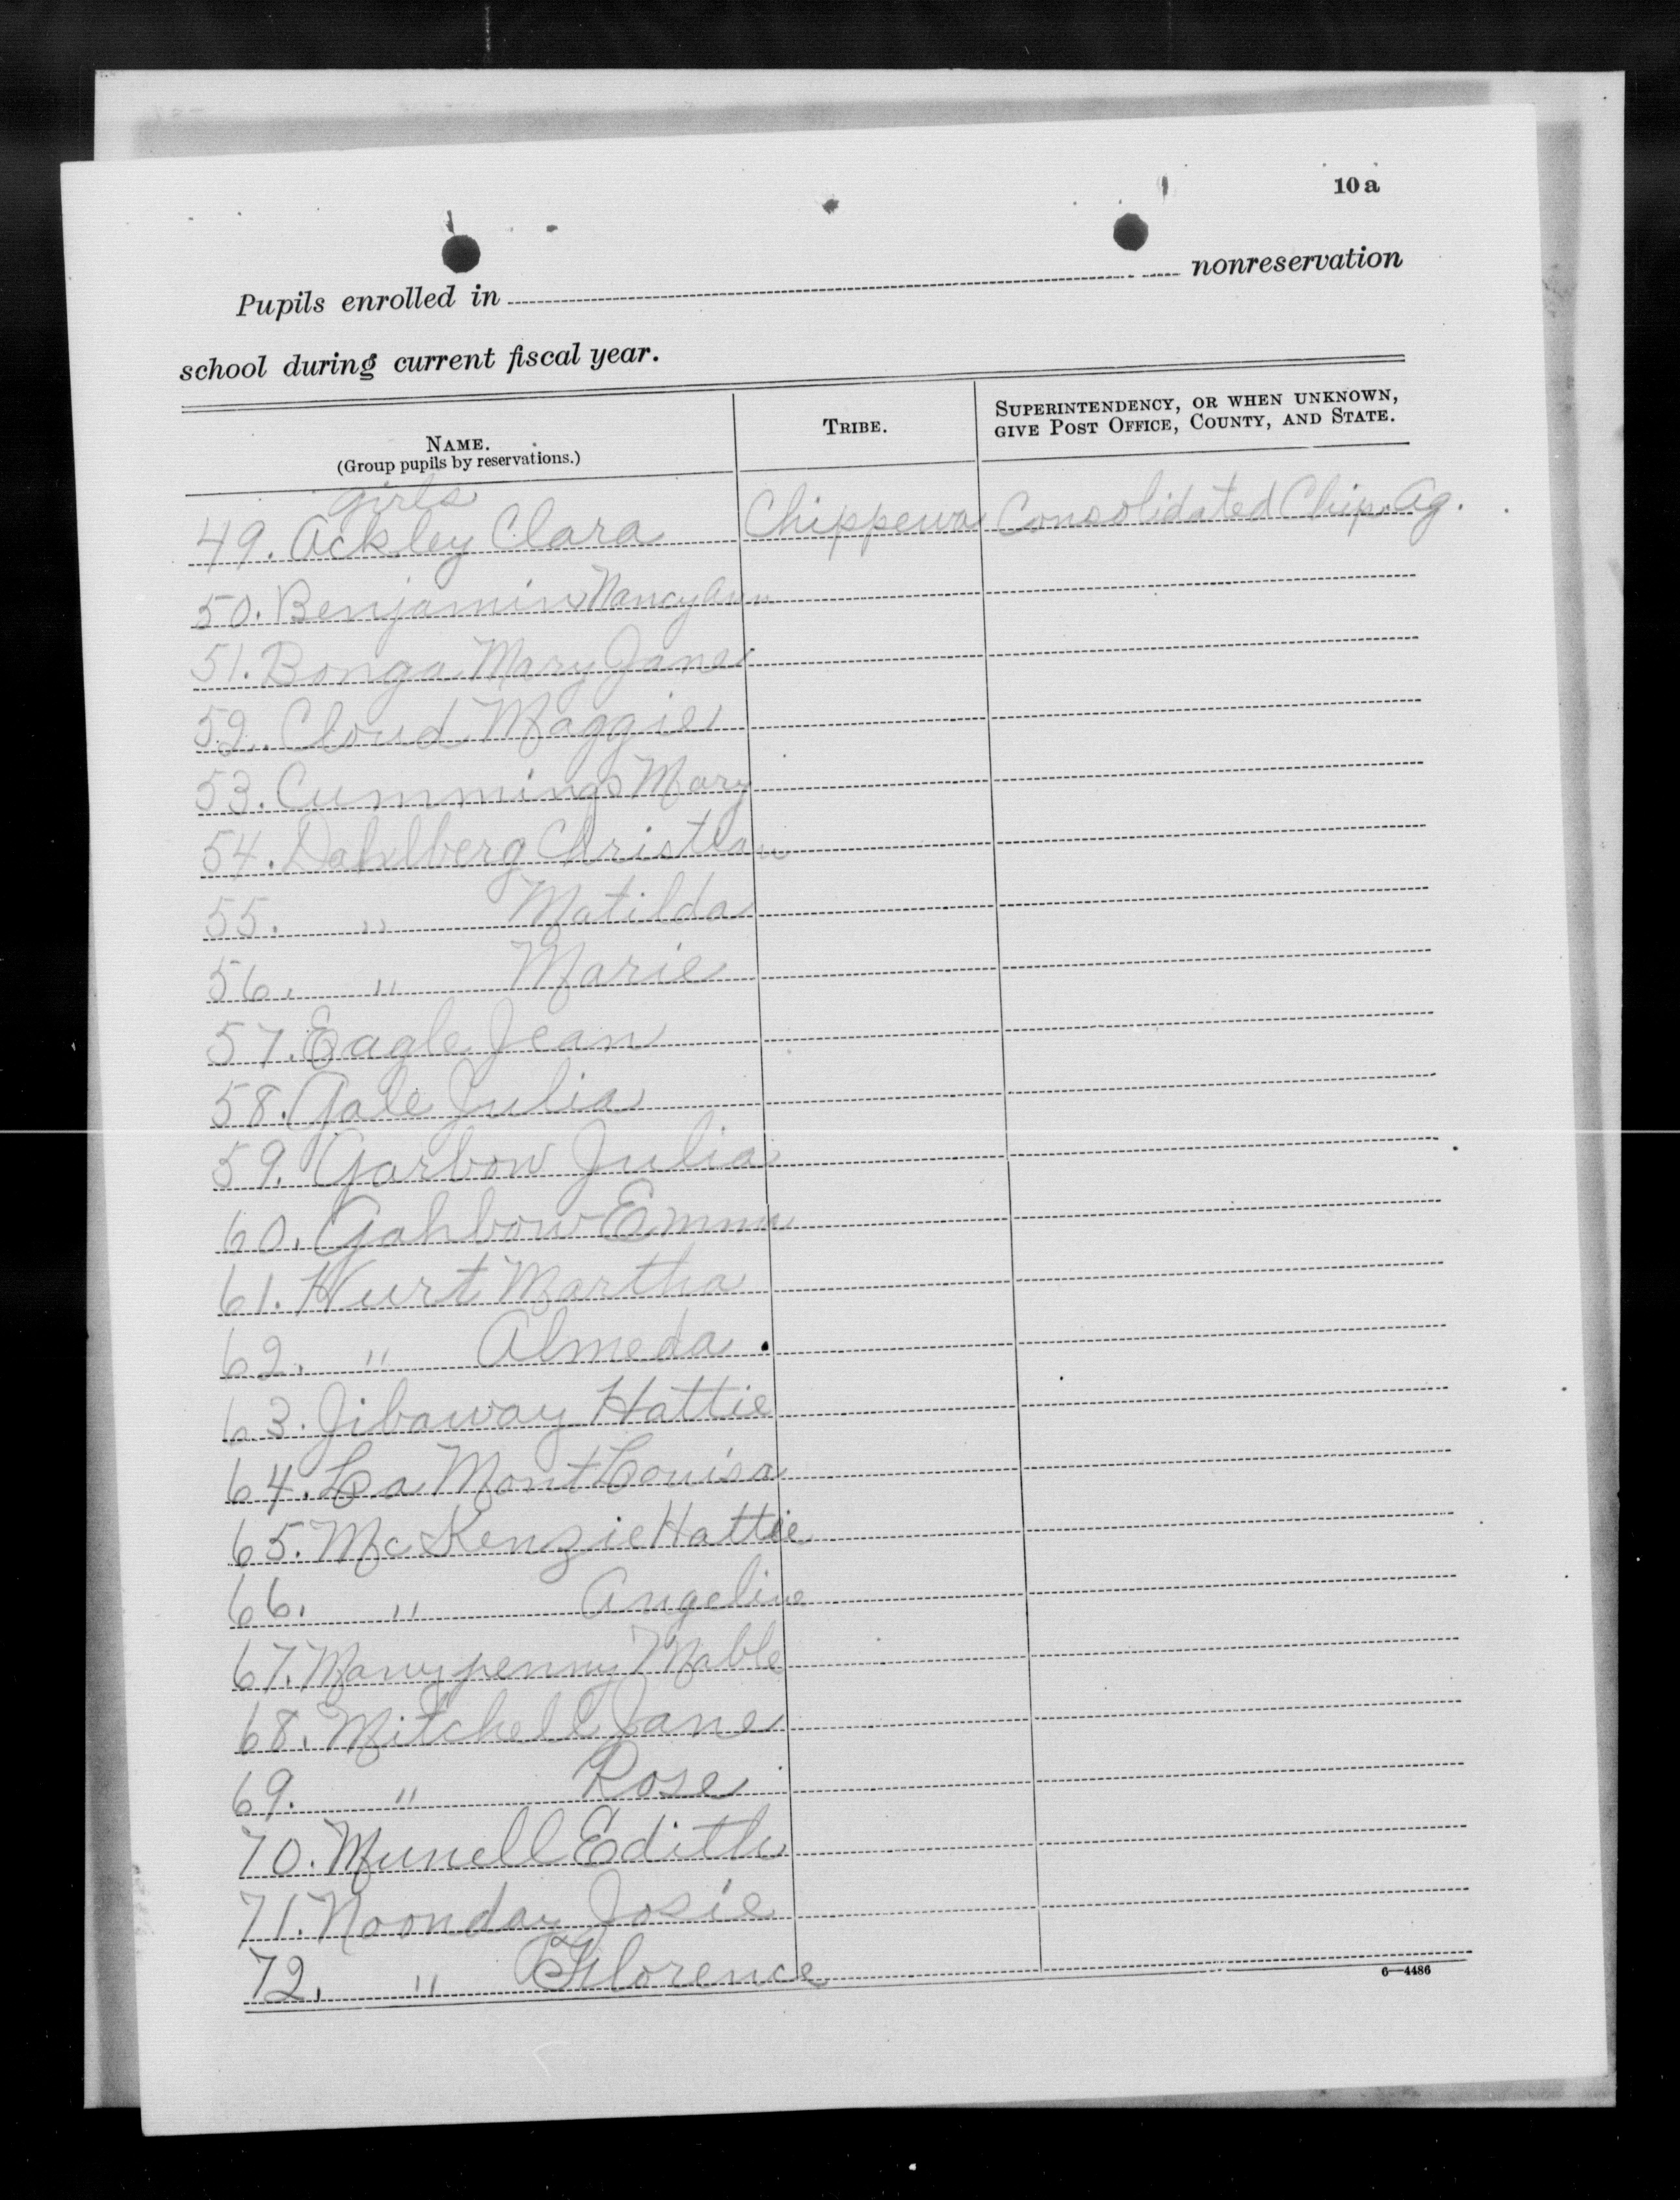 10 a
Pupils enrolled in nonreservation
school during current fiscal year.
NAME.
(Group pupils by reservations.)
TRIBE.
SUPERINTENDENCY, OR WHEN UNKNOWN,
GIVE POST OFFICE, COUNTY, AND STATE.
girls
49. Ackley Clara Chippewa Consolidated Chip. Ag.
50. Benjamin Nancy Ann
51. Bonga Mary Jane
52. Cloud Maggie
53. Cummings Mary
54. Dahlberg Christian
55. " Matilda
56. " Marie
57. Eagle Jean
58. Gale Julia
59. Garbow Julia
60. Gahbow Emma
61. Hurt Martha
62. " Almeda
63. Jibaway Hattie
64. La Mont Louisa
65. McKenzie Hattie
66. " Angeline
67. Manypenny Mable
68. Mitchell Jane
69. " Rose
70. Munell Edith
71. Noonday Josie
72. " Florence
6—4486